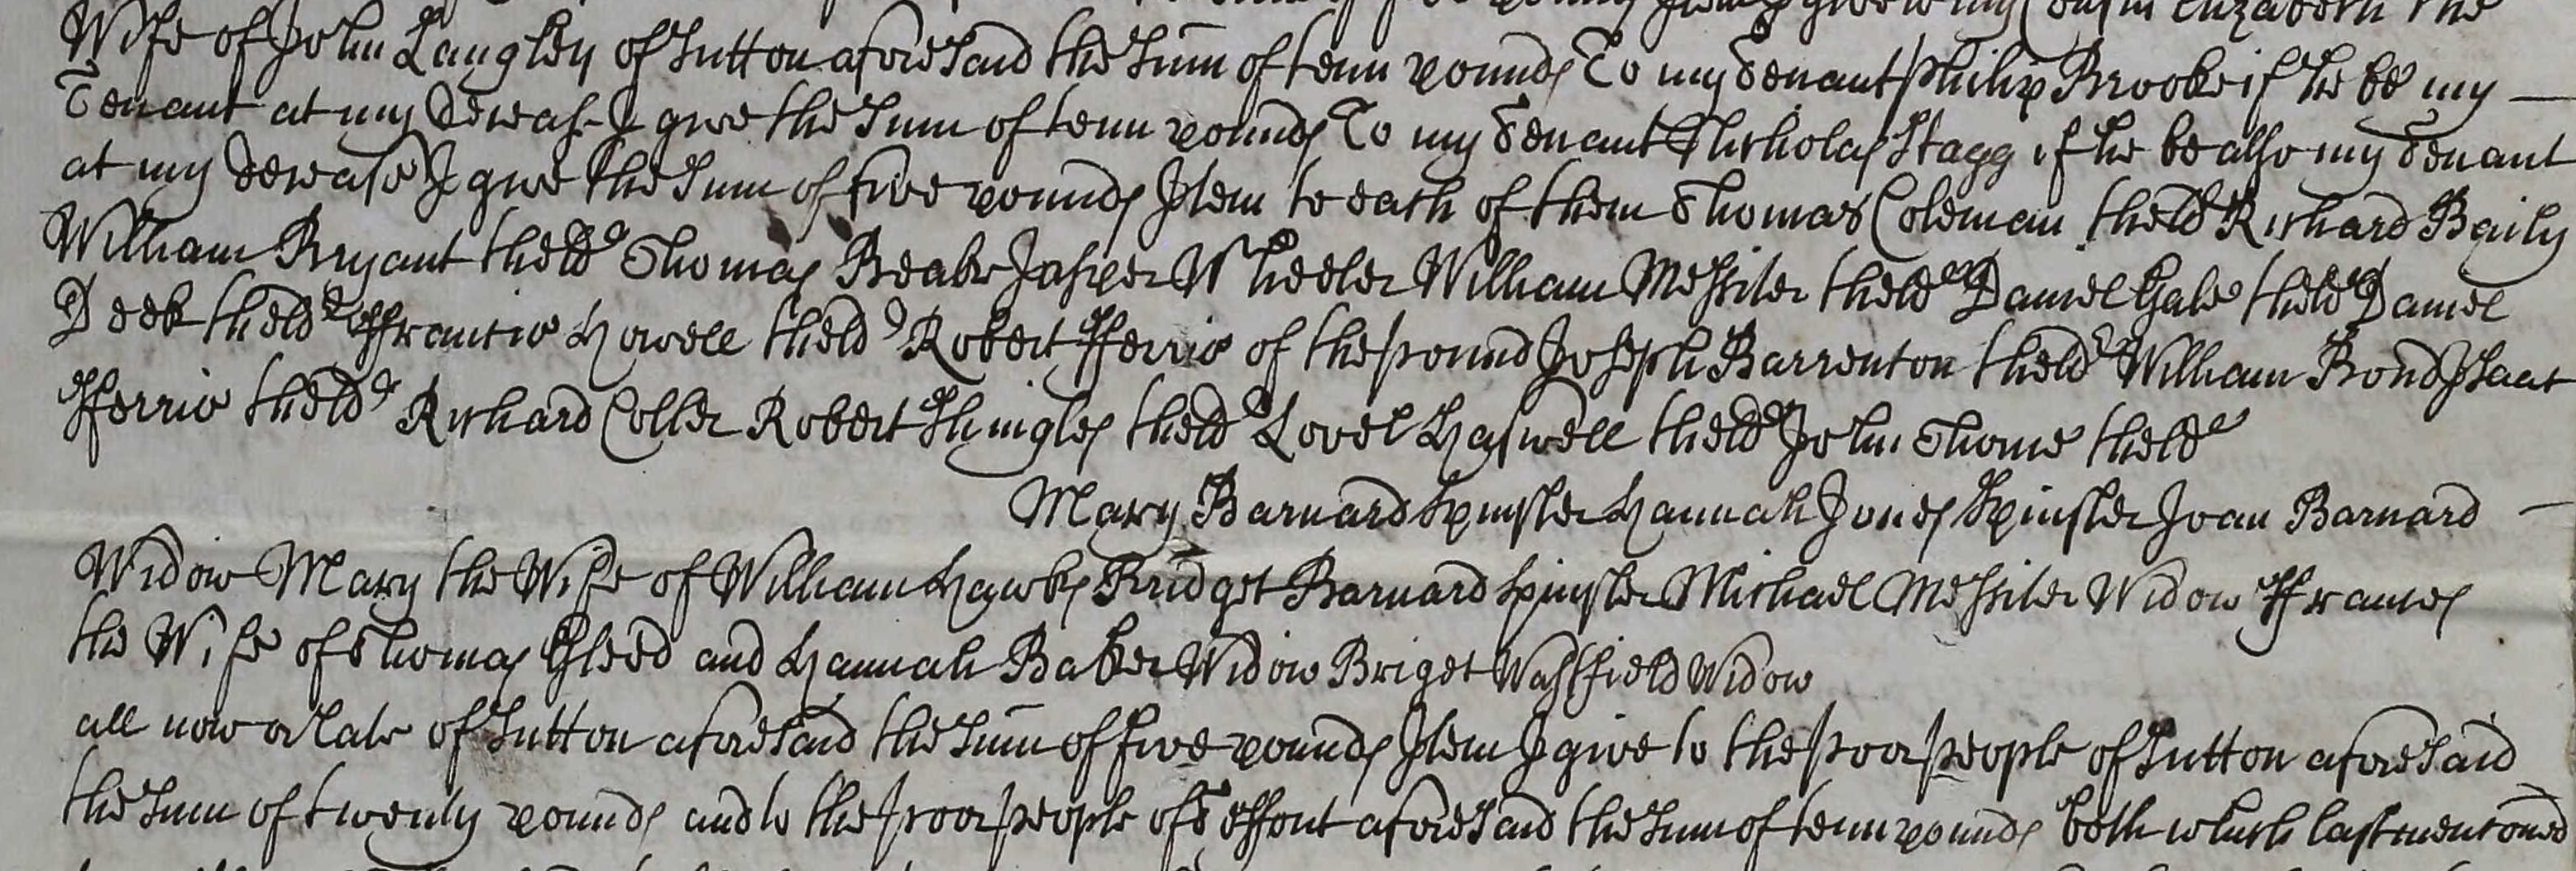 Cousin Elizabeth the
Wife of John Langley of Sutton aforesaid the Sum of tenn pounds To my Tenant Philip Brooke if he be my
Tenant at my Deceas I give the Sum of tenn pounds To my Tenant Nicholas Stagg if he be also my Tenant
at my Decease I give the Sum of five pounds Item to each of them Thomas Coleman the eld Richard Baily
William Bryant the eldr Thomas Beake Jasper Wheeler William Messiter the eldr Daniel Gale the eldr Daniel
Deek the eldr Francis Howell the eldr Robert Fferris of the pound Joseph Barrenton the eldr William Bond Isaac
Fferris the eldr Richard Coller Robert Shingles the eldr Lovel Haswell the eldr John Thorne the eldr
Mary Barnard Spinster Hannah Jones Spinster Joan Barnard
Widow Mary the Wife of William Hawks Bridget Barnard Spinster Michael Messiter Widow Ffrances
the Wife of Thomas Gleed and Hannah Baker Widow Briget Washfield Widow
all now or late of Sutton aforesaid the Sum of five pounds Item I give to the poor people of Sutton aforesaid
the Sum of twenty pounds and to the poor people of Teffont aforesaid the Sum of tenn pounds both which last mentoned